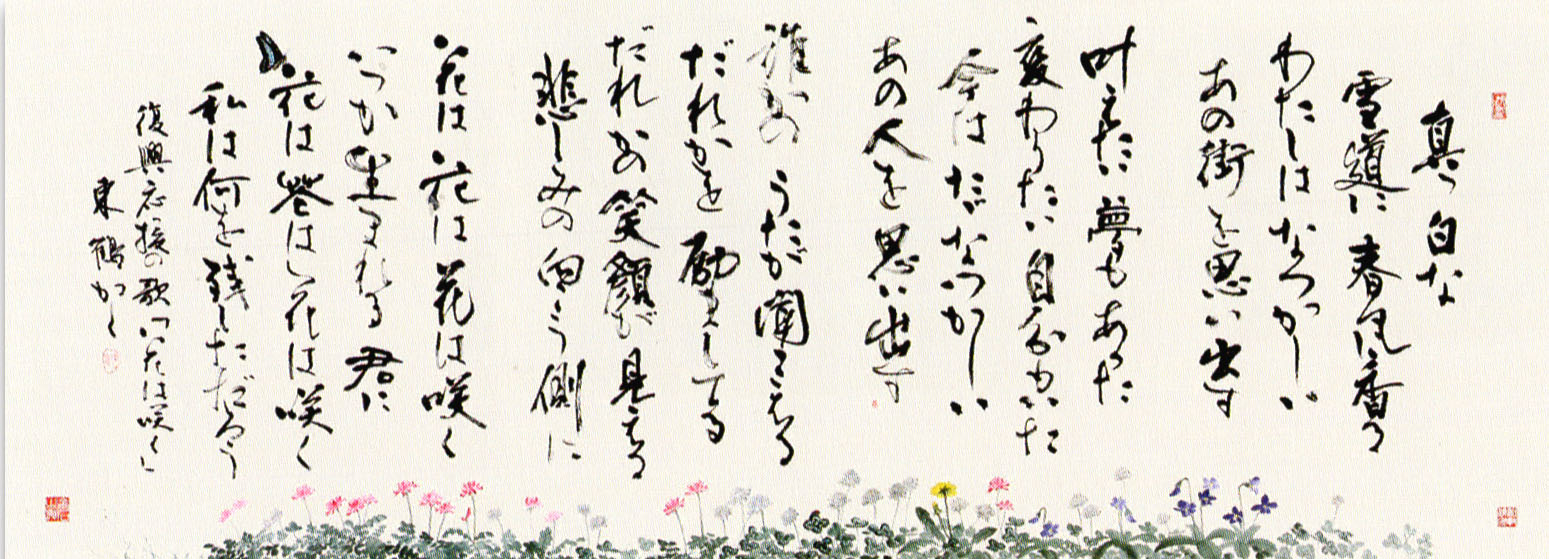 真っ白な
雪道に春風香る
わたしはなつかしい
あの街を思い出す
叶えたい夢もあった
変わりたい自分もいた
今はただなつかしい
あの人を思い出す
誰かのうたが聞こえる
だれかを励ましてる
だれかの笑顔が見える
悲しみの向こう側に
花は花は花は咲く
いつか生まれる君に
花は花は花は咲く
私は何を残しただろう
復興応援の歌「花は咲く」
東鶴かく